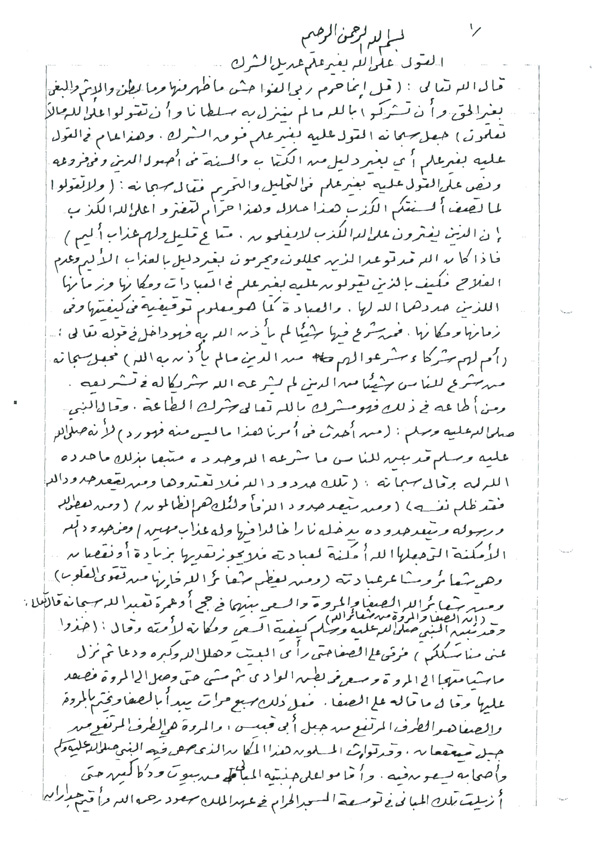 ١/
بسم الله الرحمن الرحيم
القول على الله بغير علم عديل الشرك
قال الله تعالى : ( قل إنما حرم ربي الفواحش ما ظهر منها وما بطن والإثم والبغي
بغير الحق وأن تشركوا بالله مالم ينزل به سلطانا وأن تقولوا على الله مالا
تعلمون ) جعل سبحانه القول عليه بغير علم فوق الشرك . وهذا عام في القول
عليه بغير علم أي بغير دليل من الكتاب والسنة في أصول الدين وفي فروعه
ونص على القول عليه بغير علم في التحليل والتحريم فقال سبحانه : ( ولا تقولوا
لما تصف ألسنتكم الكذب هذا حلال وهذا حرام لتفتروا على الله الكذب
إن الذين يفترون على الله الكذب لا يفلحون . متاع قليل ولهم عذاب أليم )
فاذا كان الله قد توعد الذين يحللون ويحرمون بغير دليل بالعذاب الأليم وعدم
الفلاح فكيف بالذين يقولون عليه بغير علم في العبادات ومكانها وزمانها
اللذين حددهما الله لها . والعبادة كما هو معلوم توقيفية في كيفيتها وفي
زمانها ومكانها . فمن شرع فيها شيئا لم يأذن الله به فهو داخل في قوله تعالى :
( أم لهم شركاء شرعوا لهم من الدين مالم يأذن به الله ) فجعل سبحانه
من شرع للناس شيئا من الدين لم يشرعه الله شريكا له في تشريعه .
ومن أطاعه في ذلك فهو مشرك بالله تعالى شرك الطاعة . وقال النبي
صلى الله عليه وسلم : ( من أحدث في أمرنا هذا ما ليس منه فهو رد ) لأنه صلى الله
عليه وسلم قد بين للناس ما شرعه الله وحدده متبعا بذلك ما حدده
الله له وقال سبحانه : ( تلك حدود الله فلا تعتدوها ومن يتعد حدود الله
فقد ظلم نفسه ) ( ومن يتعد حدود الله فأولئك هم الظالمون ) ( ومن يعص الله
ورسوله ويتعد حدوده يدخله نارا خالدا فيها وله عذاب مهين ) ومن حدود الله
الأمكنة التي جعلها الله أمكنة لعبادته فلا يجوز تعديها بزيادة أو نقصان
وهي شعائر ومشاعر عبادته ( ومن يعظم شعائر الله فإنها من تقوى القلوب )
ومن شعائر الله الصفا والمروة والسعي بينهما في حج أو عمرة تعبد الله سبحانه قال تعالى :
( إن الصفا والمروة من شعائر الله )
وقد بين النبي صلى الله عليه وسلم كيفية السعي ومكانه لأمته وقال : ( خذوا
عني مناسككم ) فرقى على الصفا حتى رأى البيت وهلل الله وكبره ودعا ثم نزل
ماشيا متجها الى المروة وسعى في بطن الوادي ثم مشى حتى وصل الى المروة فصعد
عليها وقال ما قاله على الصفا . فعل ذلك سبع مرات يبدأ بالصفا ويختم بالمروة
والصفا هو الطرف المرتفع من جبل أبي قبيس ، والمروة هي الطرف المرتفع من
جبل قعيقعان . وقد توارث المسلمون هذا المكان الذي سعى فيه النبي صلى الله عليه وسلم
وأصحابه يسعون فيه . وأقاموا على جنبتيه المباني من بيوت ودكاكين حتى
أزيلت تلك المباني في توسعة المسجد الحرام في عهد الملك سعود رحمه الله وأقيم جداران